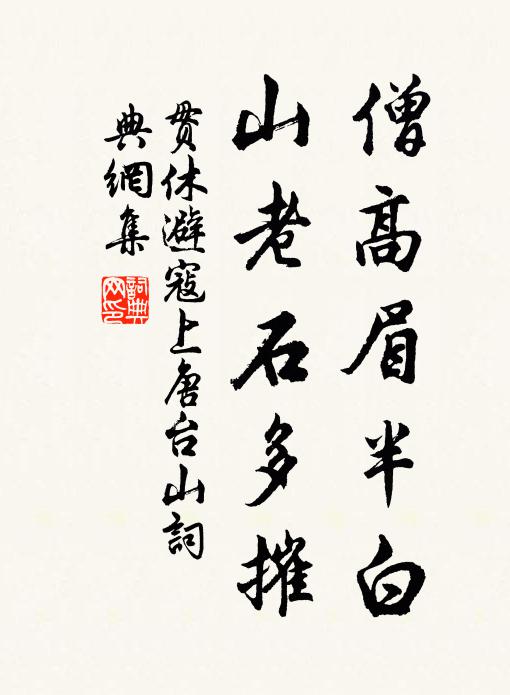 僧高眉半白
山老石多摧
贯休避寇上唐台山詞
典網集
詞典
网印